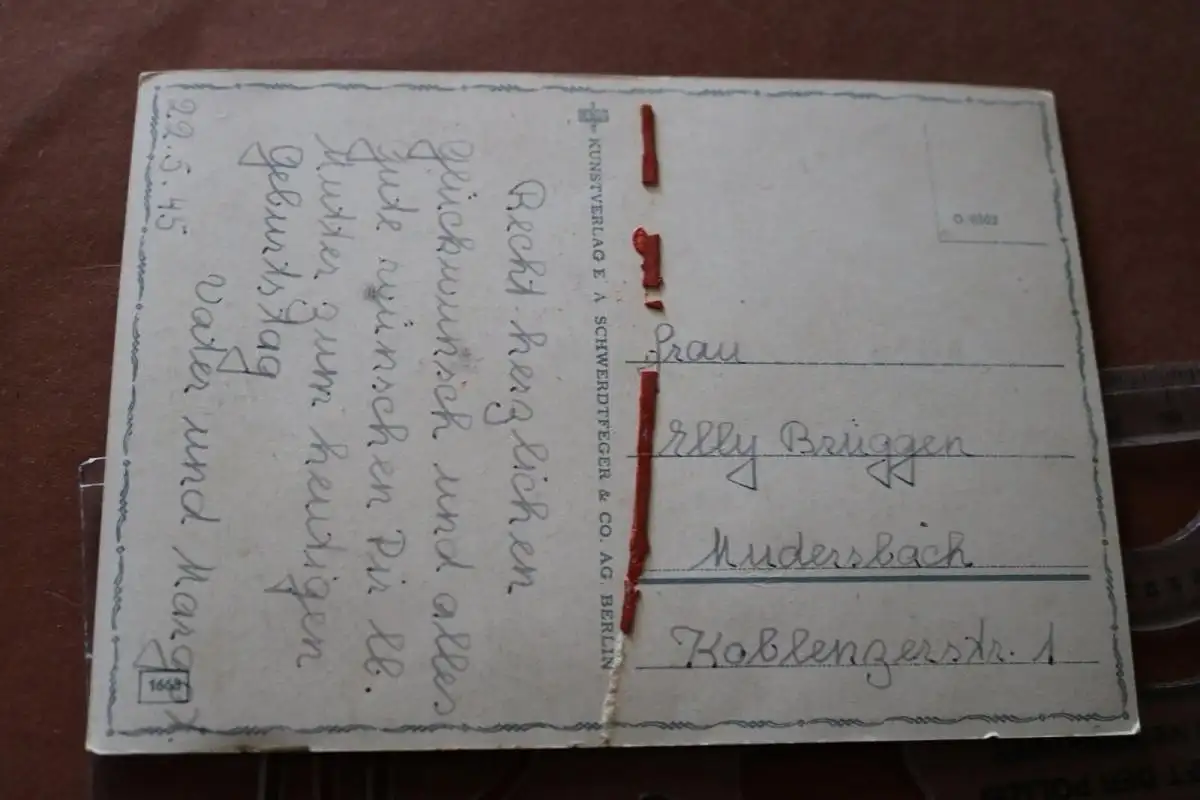 22.5.45
Recht herzlichen
Glückwunsch und alles
Gute wünschen Dir lb.
Mutter zum heutigen
Geburtstag
Vater und
KUNSTVERLAG E A SCHWERDTFEGER & CO. AG. BERLIN
Frau
Elly Brüggen
Mudersbach
Koblenzerstr. 1